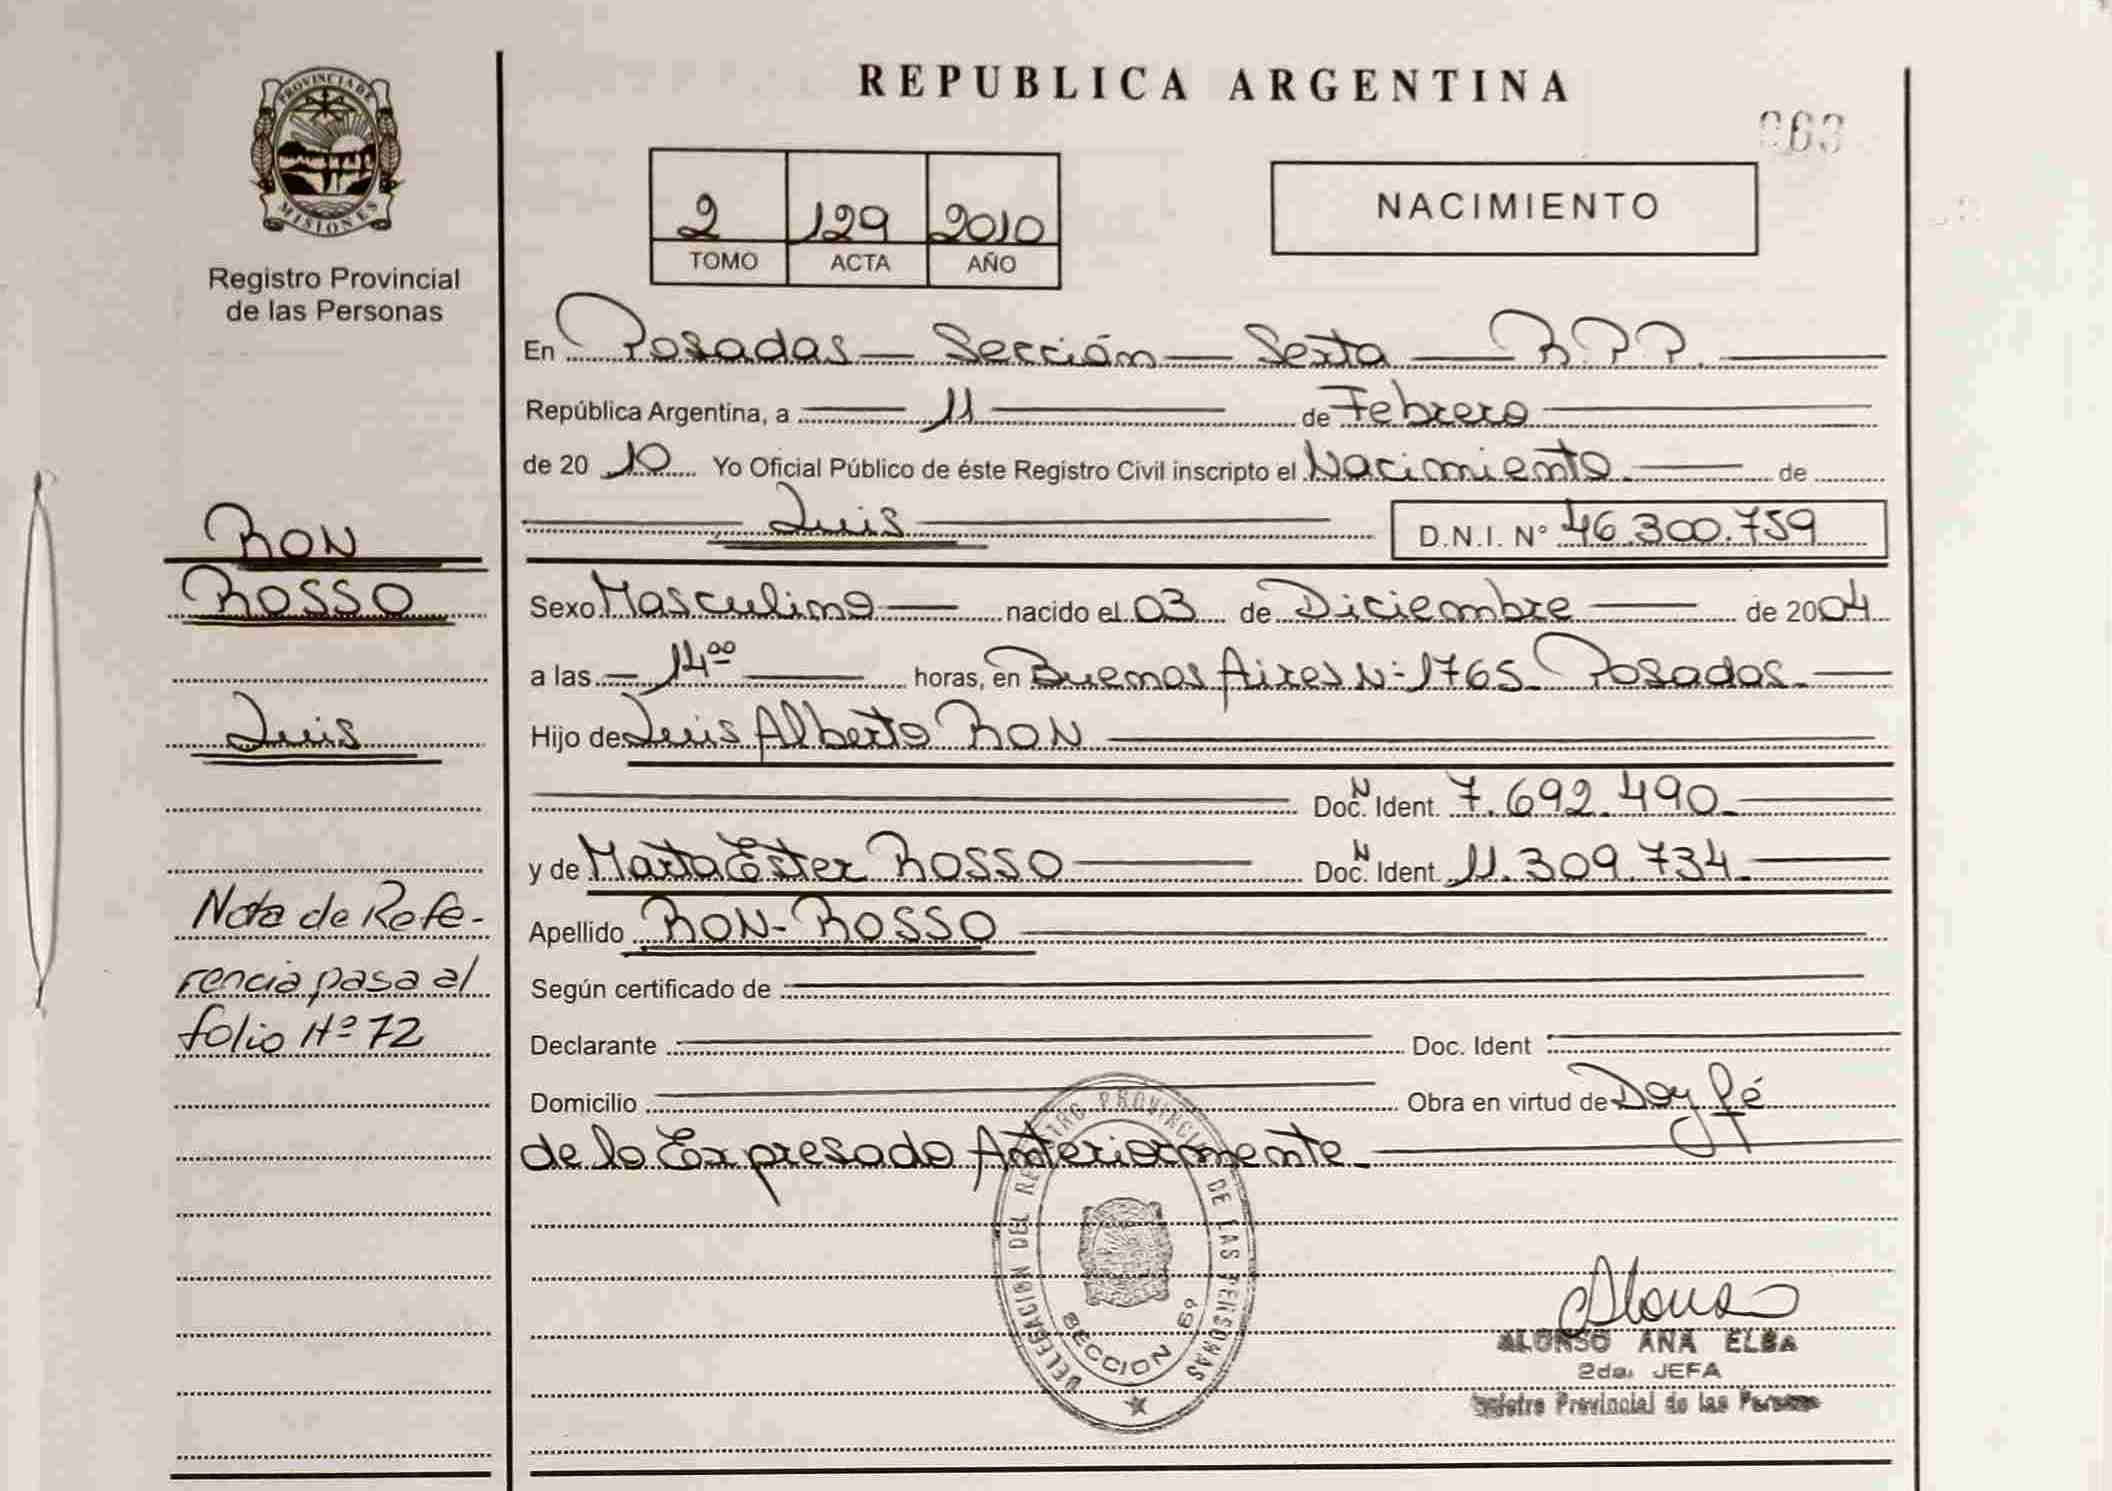 PROVINCIA DE
MISIONES
Registro Provincial
de las Personas
RON
ROSSO
Luis
Nota de Refe-
rencia pasa al
folio Nº 72
REPUBLICA ARGENTINA
063
2 129 2010
TOMO ACTA AÑO
NACIMIENTO
En Posadas — Sección — Sexta — R.P.P.
República Argentina, a 11 de Febrero
de 20 10 Yo Oficial Público de éste Registro Civil inscripto el Nacimiento de
Luis D.N.I. N° 46.300.759
Sexo Masculino nacido el 03 de Diciembre de 2004
a las 14 00 horas, en Buenos Aires Nº 1765 Posadas
Hijo de Luis Alberto RON
Doc. N Ident. 7.692.490
y de Marta Ester ROSSO Doc. N Ident. 11.309.734
Apellido RON-ROSSO
Según certificado de
Declarante Doc. Ident
Domicilio Obra en virtud de Doy fé
de lo Expresado Anteriormente
DELEGACION DEL REGISTRO PROVINCIAL DE LAS PERSONAS
SECCION 6ª
Alonso
ALONSO ANA ELBA
2da. JEFA
Registro Provincial de las Personas